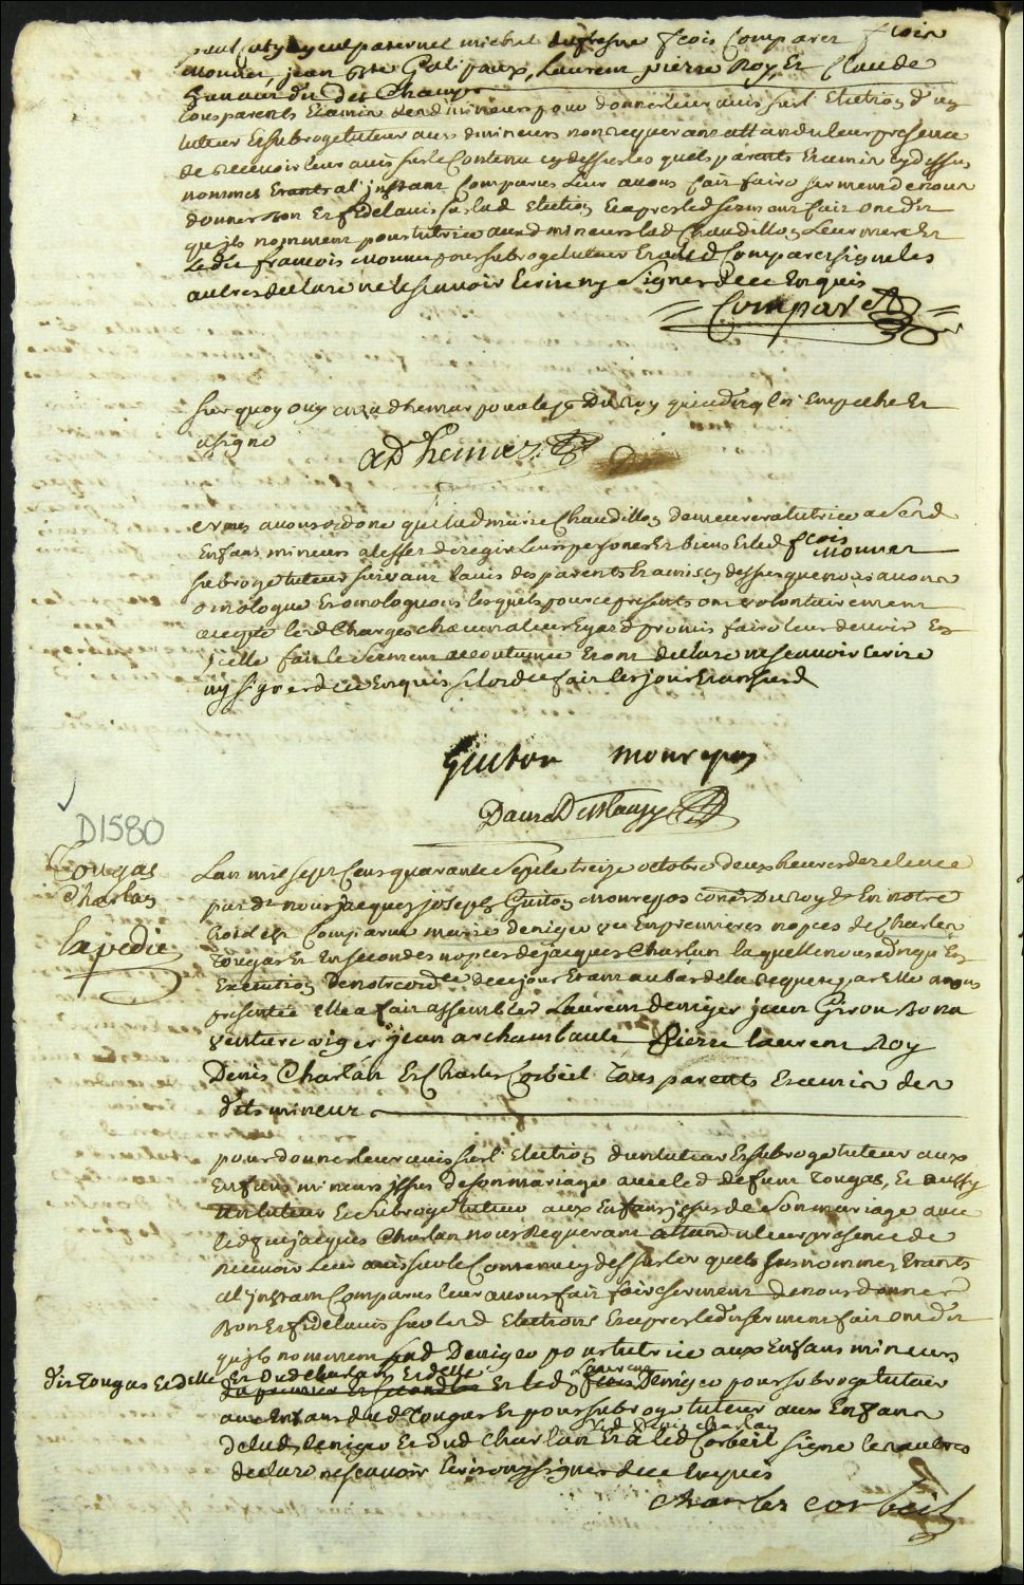 paul Caty ayeul paternel michel dufresne fcois Comparet fcois
monnier, jean bte Galipaux, Laurent pierre Roy, Et Claude
des Champs
tous parents Et amis desd mineurs pour donner leur avis sur l'Election d'un
tuteur Et subrogé tuteur aux d mineurs nous requerant attandu leur presence
de recevoir leur avis sur le Contenu cy dessus les quels parents Et amis cy dessus
nommés Etants a l'jnstant Comparus Leur avons fait faire serment de nous
donner bon Et fidel avis sur lad Election Et apres led serment fait ont dit
qu'ils nomment pour tutrice auxd mineurs lad Chaudillon Leur mere Et
Ledit francois monnier pour subrogé tuteur Et a led Comparet signé les
autres declaré ne sçavoir Ecrire ny Signer de ce Enquis
Comparet
sur quoy ouy me adhemar pour le p du Roy qui a dit qu'il n'Empeche Et
a signé
adhemar
et nous avons ordoné que lad marie Chaudillon demeurera tutrice a sesd
Enfans mineurs a leffet de regir leurs personnes Et biens Et led fcois
monnier
subrogé tuteur suivant l'avis des parents Et amis cy dessus que nous avons
omologué Et omologuons lesquels pour ce presents ont volontairement
accepté lesd Charges chacun a leur Egard promis faire leur devoir En
jcelle fait le serment accoutumé Et ont declaré ne sçavoir Ecrire
ny signer de ce Enquis fait les jour Et an susd
Guiton monrepos
Danré De Blanzy
D1580
Tougas
Charlan
Expedié
L'an mil sept Cens quarante sept le treize octobre deux heures de relevée
par dt nous jacques joseph Guiton monrepos coner du Roy & En notre
hotel Est Comparue marie deniger ve En premieres nopces de Charles
Tougas Et En secondes nopces de jacques Charlan laquelle nous a dit qu'En
Execution De notre ordce de ce jour Etant au bas de la requeste par Elle a nous
presentée Elle a fait assembler Laurent deniger jean Giron Bona
venture viger jean archambault Pierre laurent Roy
Denis Charlan Et Charles Corbeil Tous parents Et amis des
dits mineur
pour donner leur avis sur l'Election d'un tuteur Et subrogé tuteur aux
Enfans mineurs jssus de son mariage avec led defunt Tougas, Et aussy
un tuteur Et subrogé tuteur aux Enfans jssus de Son mariage avec
led feu jacques Charlan nous Requerant attandu leur presence de
recevoir Leur avis sur le Contenu cy dessus les quels susnommez Etants
al'jnstant Comparus leur avons fait faire serment de nous donner
Bon Et fidel avis sur lesd Elections Et apres ledit serment fait ont dit
qu'ils nomment lad Deniger pour tutrice aux Enfans mineurs
dit Tougas Et d'elle Et Dud Charlan Et d'elle Et led Laurent Deniger pour subrogé tuteur
aux Enfans dud Tougas Et pour subrogé tuteur aux Enfans
de lad Deniger Et dud Charlan led Denis charlan Et a led Corbeil signé les autres
declaré ne sçavoir Ecrire ny signer de ce Enquis
charles corbeil